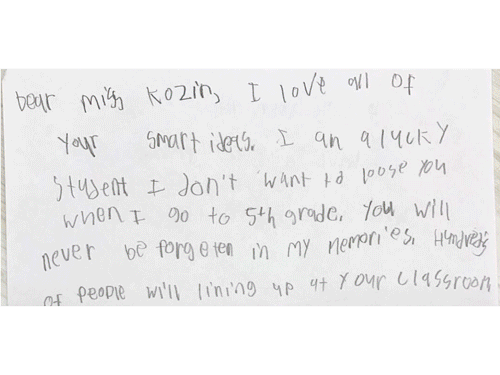 Dear Miss Kozin, I love all of
your smart ideas. I an a lucky
student I don't want to loose you
when I go to 5th grade. You will
never be forgeten in my memories. Hundreds
of people will lining up at your classroom